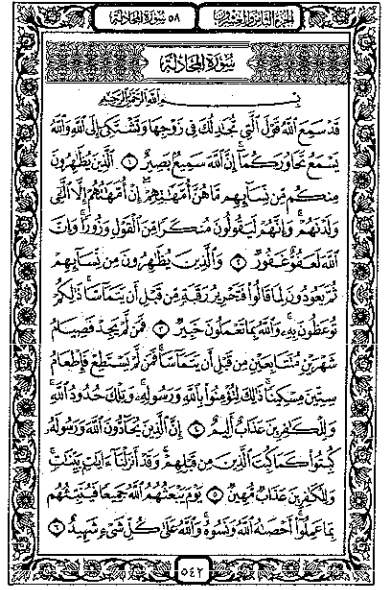 الجزء الثامن والعشرون
٥٨ سورة المجادلة
سورة المجادلة
بسم الله الرحمن الرحيم
قَدْ سَمِعَ ٱللَّهُ قَوْلَ ٱلَّتِى تُجَٰدِلُكَ فِى زَوْجِهَا وَتَشْتَكِىٓ إِلَى ٱللَّهِ وَٱللَّهُ
يَسْمَعُ تَحَاوُرَكُمَآ إِنَّ ٱللَّهَ سَمِيعٌۢ بَصِيرٌ ١ ٱلَّذِينَ يُظَٰهِرُونَ
مِنكُم مِّن نِّسَآئِهِم مَّا هُنَّ أُمَّهَٰتِهِمْ إِنْ أُمَّهَٰتُهُمْ إِلَّا ٱلَّٰٓـِٔى
وَلَدْنَهُمْ وَإِنَّهُمْ لَيَقُولُونَ مُنكَرًا مِّنَ ٱلْقَوْلِ وَزُورًا وَإِنَّ
ٱللَّهَ لَعَفُوٌّ غَفُورٌ ٢ وَٱلَّذِينَ يُظَٰهِرُونَ مِن نِّسَآئِهِمْ
ثُمَّ يَعُودُونَ لِمَا قَالُوا۟ فَتَحْرِيرُ رَقَبَةٍ مِّن قَبْلِ أَن يَتَمَآسَّا ذَٰلِكُمْ
تُوعَظُونَ بِهِۦ وَٱللَّهُ بِمَا تَعْمَلُونَ خَبِيرٌ ٣ فَمَن لَّمْ يَجِدْ فَصِيَامُ
شَهْرَيْنِ مُتَتَابِعَيْنِ مِن قَبْلِ أَن يَتَمَآسَّا فَمَن لَّمْ يَسْتَطِعْ فَإِطْعَامُ
سِتِّينَ مِسْكِينًا ذَٰلِكَ لِتُؤْمِنُوا۟ بِٱللَّهِ وَرَسُولِهِۦ وَتِلْكَ حُدُودُ ٱللَّهِ
وَلِلْكَٰفِرِينَ عَذَابٌ أَلِيمٌ ٤ إِنَّ ٱلَّذِينَ يُحَآدُّونَ ٱللَّهَ وَرَسُولَهُۥ
كُبِتُوا۟ كَمَا كُبِتَ ٱلَّذِينَ مِن قَبْلِهِمْ وَقَدْ أَنزَلْنَآ ءَايَٰتٍۭ بَيِّنَٰتٍ
وَلِلْكَٰفِرِينَ عَذَابٌ مُّهِينٌ ٥ يَوْمَ يَبْعَثُهُمُ ٱللَّهُ جَمِيعًا فَيُنَبِّئُهُم
بِمَا عَمِلُوٓا۟ أَحْصَىٰهُ ٱللَّهُ وَنَسُوهُ وَٱللَّهُ عَلَىٰ كُلِّ شَىْءٍ شَهِيدٌ ٦
٥٤٢